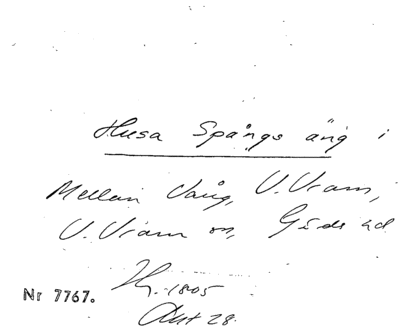 Husa Spångs äng i
Mellan Vång, V. Vram,
V. Vram sn, Gärds hd
Nr 7767.
Hy. 1805
Akt 28.